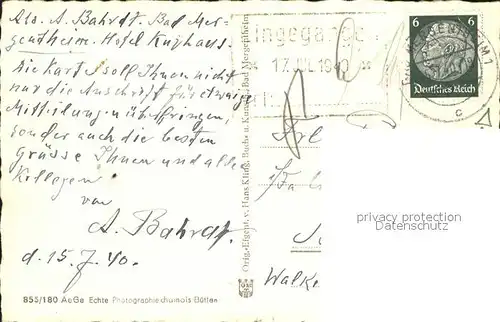 Abs. A. Bahrdt. Bad Mer-
gentheim. Hotel Kurhaus.
Die Karte soll Ihnen nicht
nur die Anschrift für etwaige
Mitteilungen überbringen,
sondern auch die besten
Grüsse Ihnen und allen
Kollegen
von
A. Bahrdt.
d. 15.7.40.
855/180 AeGe Echte Photographie chamois-Bütten
Eingegangen
17. JUL 1940
MERGENTHEIM 1
c
6 6
Deutsches Reich
Orig.-Eigent. v. Hans Kling, Buch- u. Kunsth., Bad Mergentheim
privacy protection
Datenschutz
Walke